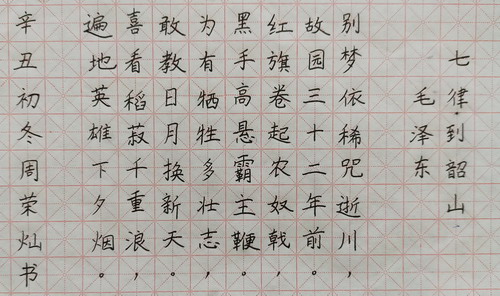 七律·到韶山
毛泽东
别梦依稀咒逝川，
故园三十二年前。
红旗卷起农奴戟，
黑手高悬霸主鞭。
为有牺牲多壮志，
敢教日月换新天。
喜看稻菽千重浪，
遍地英雄下夕烟。
辛丑初冬周荣灿书